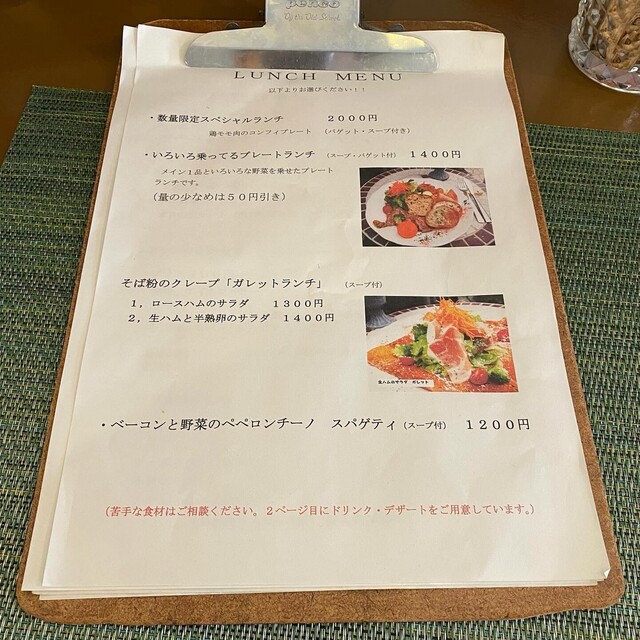 penco
LUNCH MENU
以下よりお選びください！！
・数量限定スペシャルランチ ２０００円
鶏モモ肉のコンフィプレート （バゲット・スープ付き）
・いろいろ乗ってるプレートランチ （スープ・バゲット付） １４００円
メイン１品といろいろな野菜を乗せたプレート
ランチです。
（量の少なめは５０円引き）
そば粉のクレープ「ガレットランチ」 （スープ付）
１，ロースハムのサラダ １３００円
２，生ハムと半熟卵のサラダ １４００円
生ハムのサラダ ガレット
・ベーコンと野菜のペペロンチーノ スパゲティ（スープ付） １２００円
（苦手な食材はご相談ください。２ページ目にドリンク・デザートをご用意しています。）